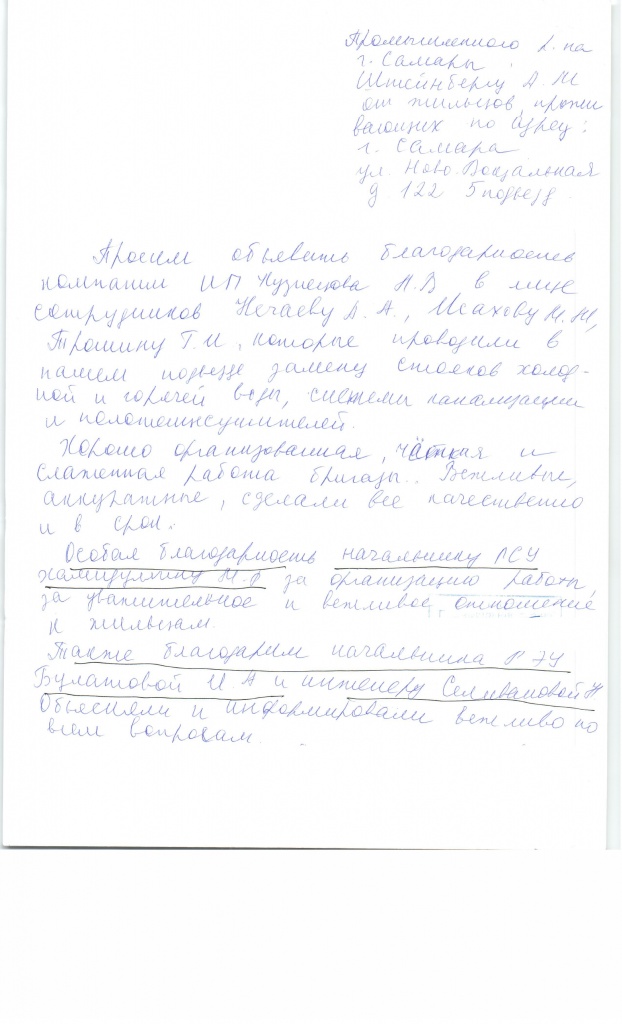 Промышленного р-на
г. Самары
Штейнбергу А. М
от жильцов, прожи
вающих по адресу:
г. Самара
ул. Ново-Вокзальная
д 122 5 подъезд
Просим объявить благодарность
компании ИП Кузнецова Н.В в лице
сотрудников Нечаеву А. А., Исахеву М. М,
Трошину Г. И, которые проводили в
нашем подъезде замену стояков холод-
ной и горячей воды, системы канализации
и полотенцесушителей.
Хорошо организованная, чёткая и
слаженная работа бригады. Вежливые,
аккуратные, сделали все качественно
и в срок.
Особая благодарность начальнику ПСУ
Хамидуллину М. Ф за организацию работы,
за уважительное и вежливое отношение
к жильцам.
Также благодарим начальника РЭУ
Булатовой И А и инженеру Селивановой Н
Объясняли и информировали вежливо по
всем вопросам.